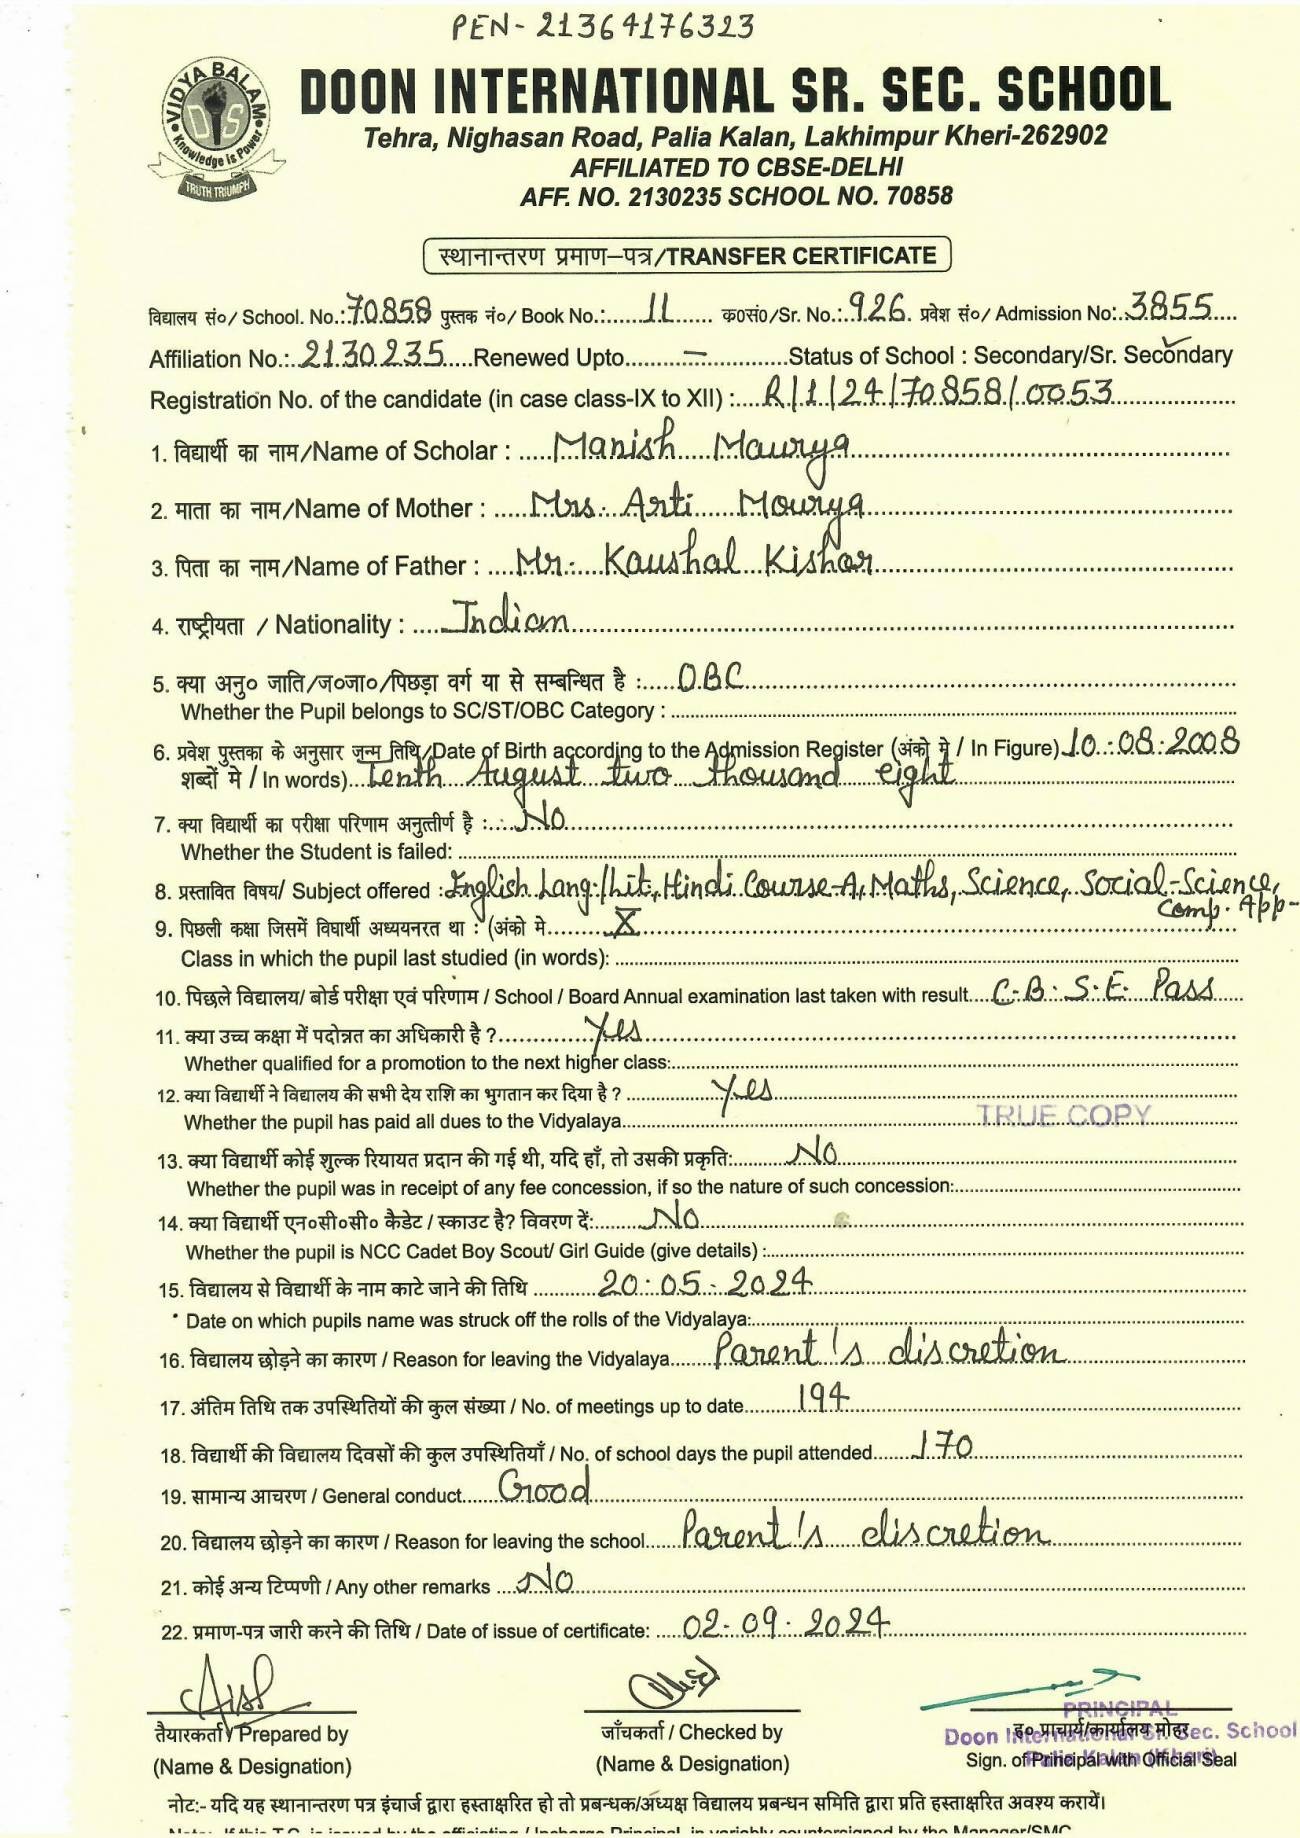 PEN- 21364176323
VIDYA BALAM
DIS
Knowledge is Power
TRUTH TRIUMPH
DOON INTERNATIONAL SR. SEC. SCHOOL
Tehra, Nighasan Road, Palia Kalan, Lakhimpur Kheri-262902
AFFILIATED TO CBSE-DELHI
AFF. NO. 2130235 SCHOOL NO. 70858
स्थानान्तरण प्रमाण–पत्र/TRANSFER CERTIFICATE
विद्यालय सं०/ School. No.:70858 पुस्तक नं०/ Book No.:......11...... क०सं०/Sr. No.:926. प्रवेश सं०/ Admission No:..3855....
Affiliation No.:..2130235....Renewed Upto.........–............Status of School : Secondary/Sr. Secondary
Registration No. of the candidate (in case class-IX to XII) :....R/1/24/70858/0053
1. विद्यार्थी का नाम/Name of Scholar : .....Manish Maurya
2. माता का नाम/Name of Mother : .....Mrs. Arti Mourya
3. पिता का नाम/Name of Father : ....Mr. Kaushal Kishor
4. राष्ट्रीयता / Nationality : ....Indian
5. क्या अनु० जाति/ज०जा०/पिछड़ा वर्ग या से सम्बन्धित है :.....OBC
Whether the Pupil belongs to SC/ST/OBC Category :
6. प्रवेश पुस्तका के अनुसार जन्म तिथि/Date of Birth according to the Admission Register (अंको मे / In Figure) 10.08.2008
शब्दों मे / In words)...Tenth August two thousand eight
7. क्या विद्यार्थी का परीक्षा परिणाम अनुत्तीर्ण है :....No
Whether the Student is failed:
8. प्रस्तावित विषय/ Subject offered :English Lang./Lit, Hindi Course-A, Maths, Science, Social-Science,
Comp. App-
9. पिछली कक्षा जिसमें विघार्थी अध्ययनरत था : (अंको मे.........X
Class in which the pupil last studied (in words):
10. पिछले विद्यालय/ बोर्ड परीक्षा एवं परिणाम / School / Board Annual examination last taken with result....C.B.S.E. Pass
11. क्या उच्च कक्षा में पदोन्नत का अधिकारी है ?..............Yes
Whether qualified for a promotion to the next higher class:
12. क्या विद्यार्थी ने विद्यालय की सभी देय राशि का भुगतान कर दिया है ? ..............Yes
Whether the pupil has paid all dues to the Vidyalaya
TRUE COPY
13. क्या विद्यार्थी कोई शुल्क रियायत प्रदान की गई थी, यदि हाँ, तो उसकी प्रकृति:.........No
Whether the pupil was in receipt of any fee concession, if so the nature of such concession:
14. क्या विद्यार्थी एन०सी०सी० कैडेट / स्काउट है? विवरण दें:........No
Whether the pupil is NCC Cadet Boy Scout/ Girl Guide (give details) :
15. विद्यालय से विद्यार्थी के नाम काटे जाने की तिथि ..........20.05.2024
Date on which pupils name was struck off the rolls of the Vidyalaya:
16. विद्यालय छोड़ने का कारण / Reason for leaving the Vidyalaya......Parent's discretion
17. अंतिम तिथि तक उपस्थितियों की कुल संख्या / No. of meetings up to date.........194
18. विद्यार्थी की विद्यालय दिवसों की कुल उपस्थितियाँ / No. of school days the pupil attended......170
19. सामान्य आचरण / General conduct......Good
20. विद्यालय छोड़ने का कारण / Reason for leaving the school......Parent's discretion
21. कोई अन्य टिप्पणी / Any other remarks ...No
22. प्रमाण-पत्र जारी करने की तिथि / Date of issue of certificate: .....02.09.2024
PRINCIPAL
Doon International Sr. Sec. School
Palia Kalan (Kheri)
तैयारकर्ता / Prepared by जाँचकर्ता / Checked by ह० प्राचार्य/कार्यालय मोहर
(Name & Designation) (Name & Designation) Sign. of Principal with Official Seal
नोट:- यदि यह स्थानान्तरण पत्र इंचार्ज द्वारा हस्ताक्षरित हो तो प्रबन्धक/अध्यक्ष विद्यालय प्रबन्धन समिति द्वारा प्रति हस्ताक्षरित अवश्य करायें।
Note:- If this T.C. is issued by the officiating / Incharge Principal, in variably countersigned by the Manager/SMC